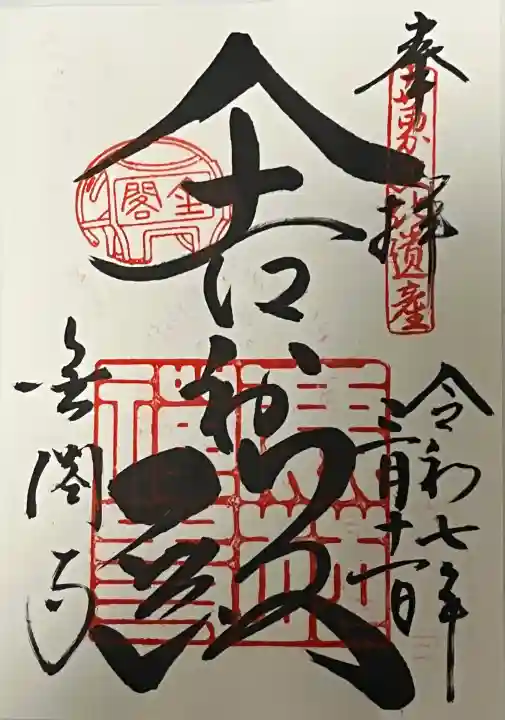 奉拝
世界文化遺産
令和七年
三月十一日
舎利殿
金閣
金閣寺